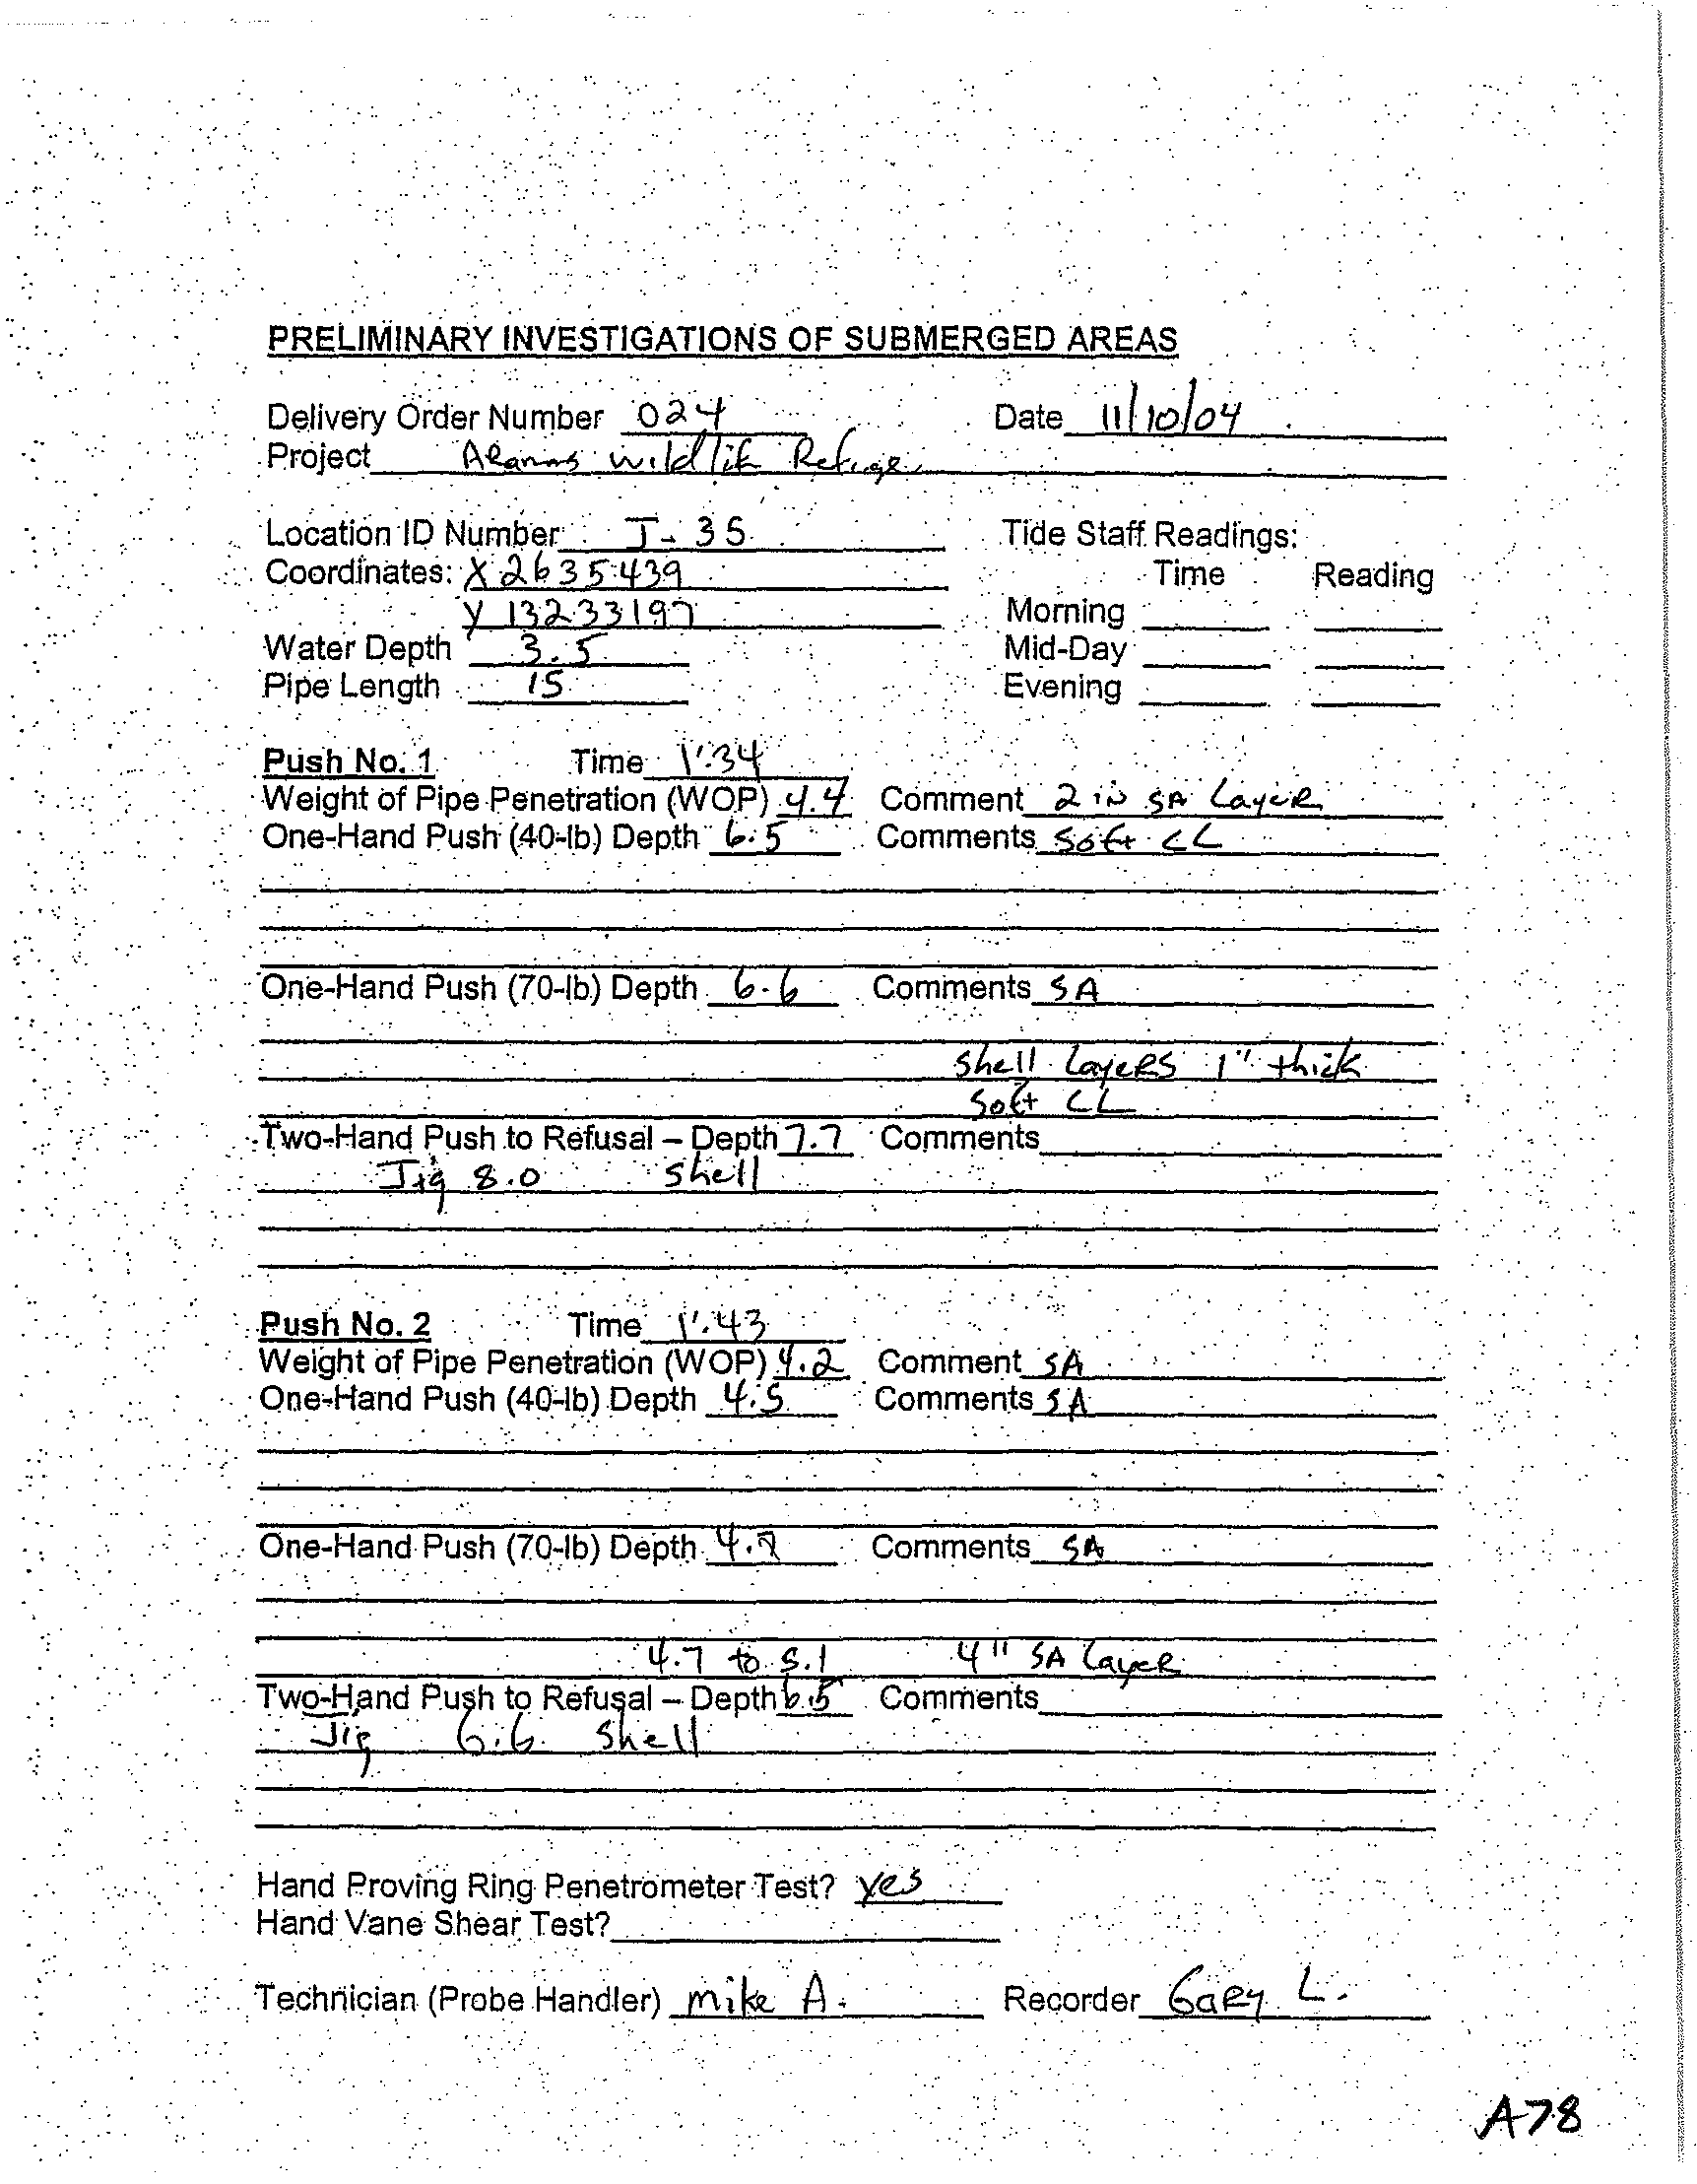 PRELIMINARY INVESTIGATIONS OF SUBMERGED AREAS
Delivery Order Number 024 Date 11/10/04
Project Wildlife Refuge
Location ID Number J-35 Tide Staff Readings:
Coordinates: X 2635439 Time Reading
Y 13233197 Morning
Water Depth 3.5 Mid-Day
Pipe Length 15 Evening
Push No. 1 Time 1:34
Weight of Pipe Penetration (WOP) 4.4 Comment 2 in SA Layer
One-Hand Push (40-lb) Depth 6.5 Comments Soft CL
One-Hand Push (70-lb) Depth 6.6 Comments SA
Shell Layers 1" thick
Soft CL
Two-Hand Push to Refusal – Depth 7.7 Comments
Jig 8.0 Shell
Push No. 2 Time 1:43
Weight of Pipe Penetration (WOP) 4.2 Comment SA
One-Hand Push (40-lb) Depth 4.5 Comments SA
One-Hand Push (70-lb) Depth 4.7 Comments SA
4.7 to 5.1 4" SA Layer
Two-Hand Push to Refusal – Depth 6.5 Comments
Jig 6.6 Shell
Hand Proving Ring Penetrometer Test? yes
Hand Vane Shear Test?
Technician (Probe Handler) Mike A. Recorder Gary L.
A78